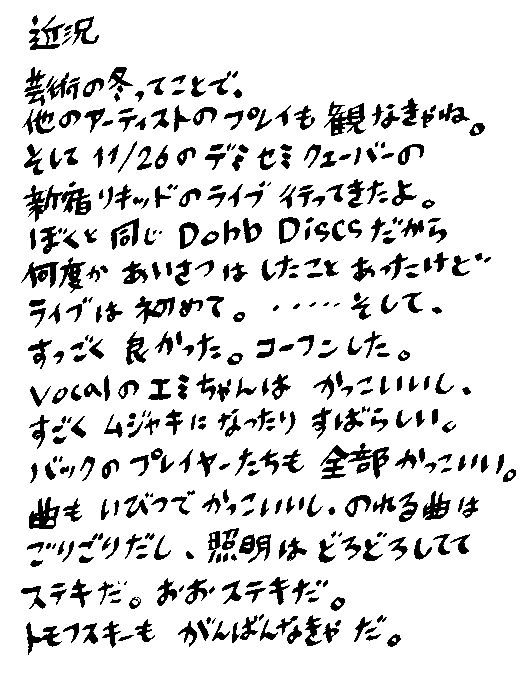 近況
芸術の冬ってことで、
他のアーティストのプレイも観なきゃね。
そして11/26のデミセミクェーバーの
新宿リキッドのライブ行ってきたよ。
ぼくと同じDohb Discsだから
何度かあいさつはしたことあったけど
ライブは初めて。……そして、
すっごく良かった。コーフンした。
Vocalのエミちゃんは かっこいいし、
すごくムジャキになったりすばらしい。
バックのプレイヤーたちも全部かっこいい。
曲もいびつでかっこいいし、のれる曲は
ごりごりだし、照明はどろどろしてて
ステキだ。おおステキだ。
トモフスキーも がんばんなきゃだ。